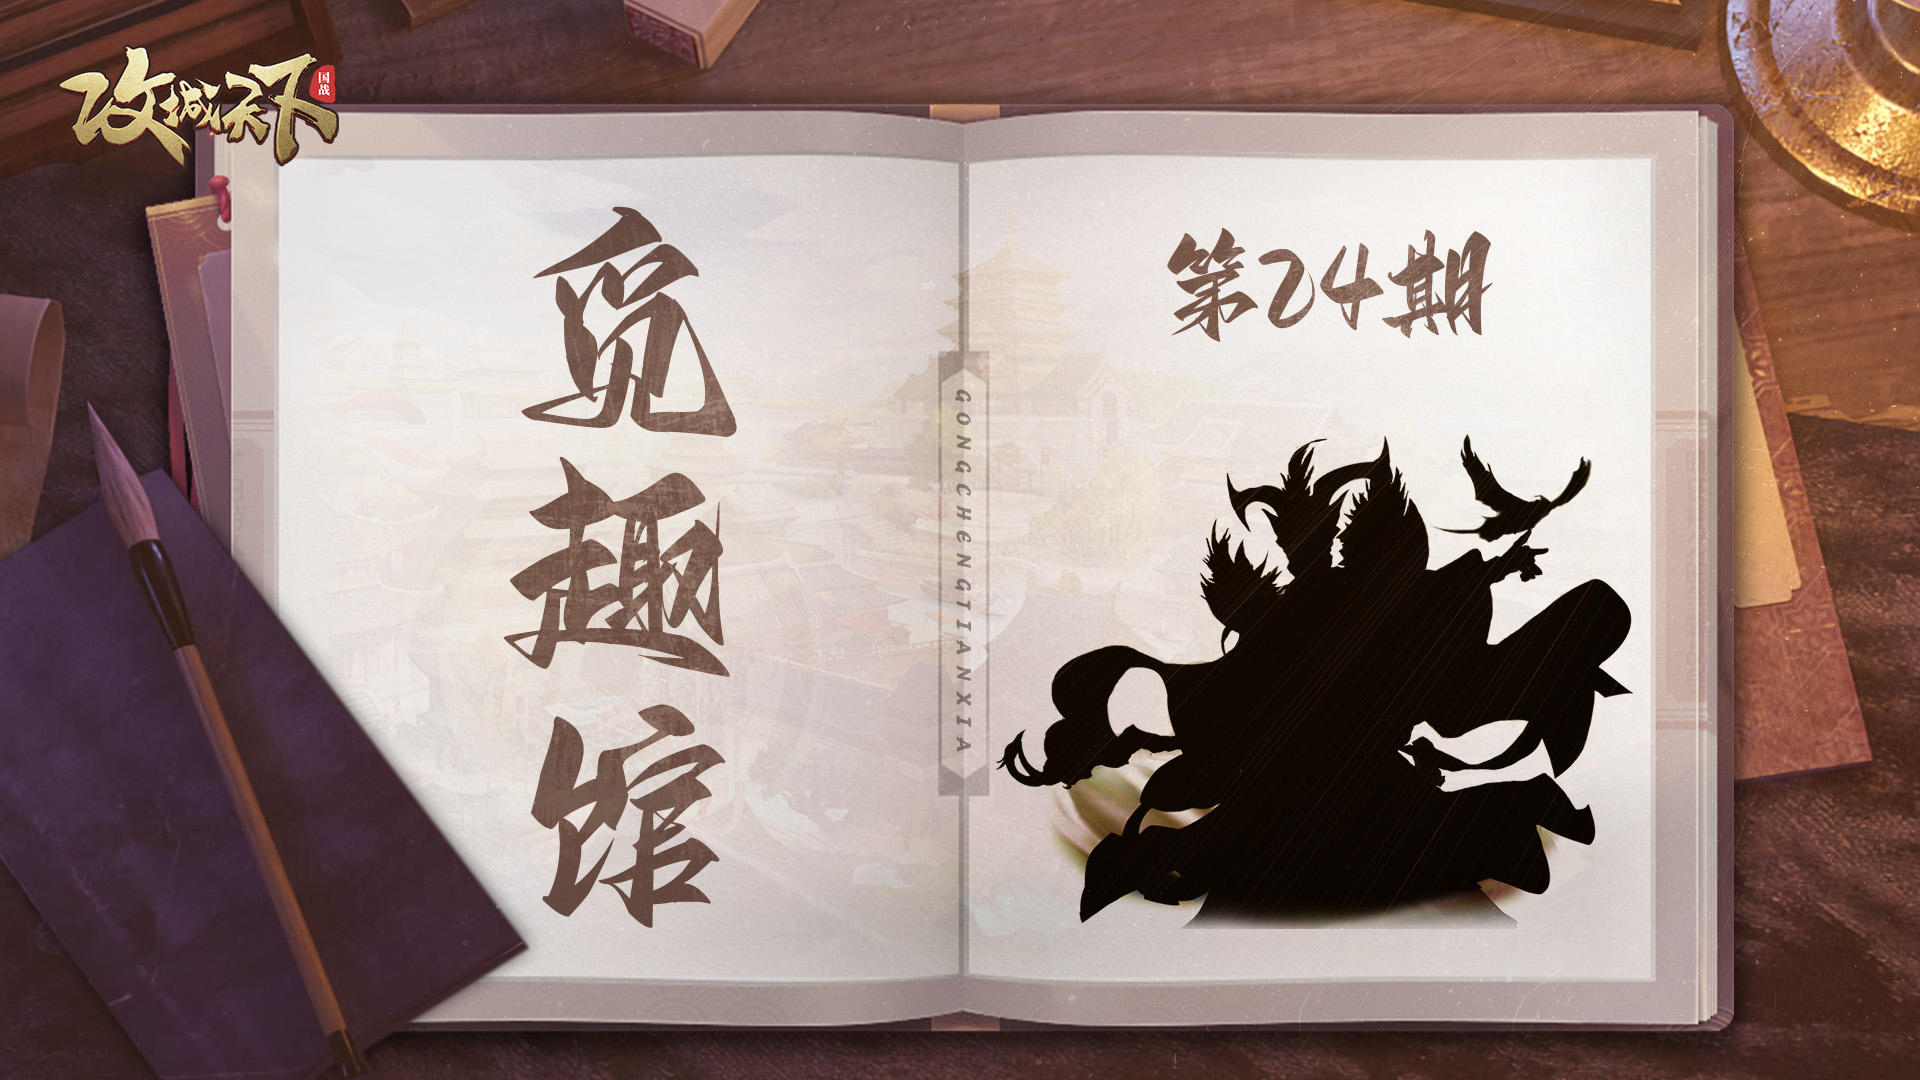 攻城天下
国战
觅趣馆
第24期
GONGCHENGTIANXIA